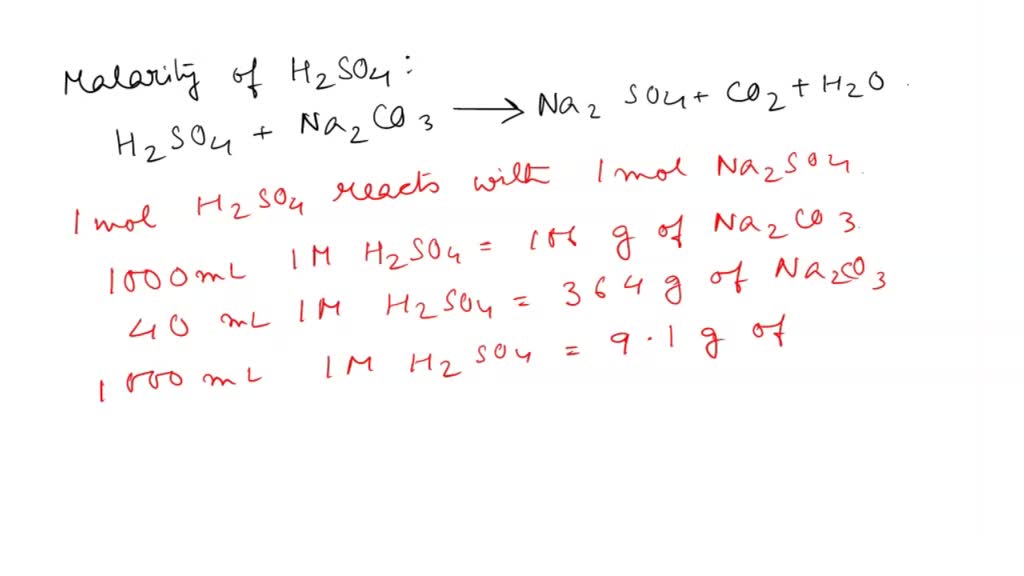 Malarity of H2SO4:
H2SO4 + Na2CO3 → Na2 SO4 + CO2 + H2O
1 mol H2SO4 reacts with 1 mol Na2SO4.
1000 mL 1M H2SO4 = 106 g of Na2CO3.
40 mL 1M H2SO4 = 364 g of Na2CO3
1000 mL 1M H2SO4 = 9.1 g of